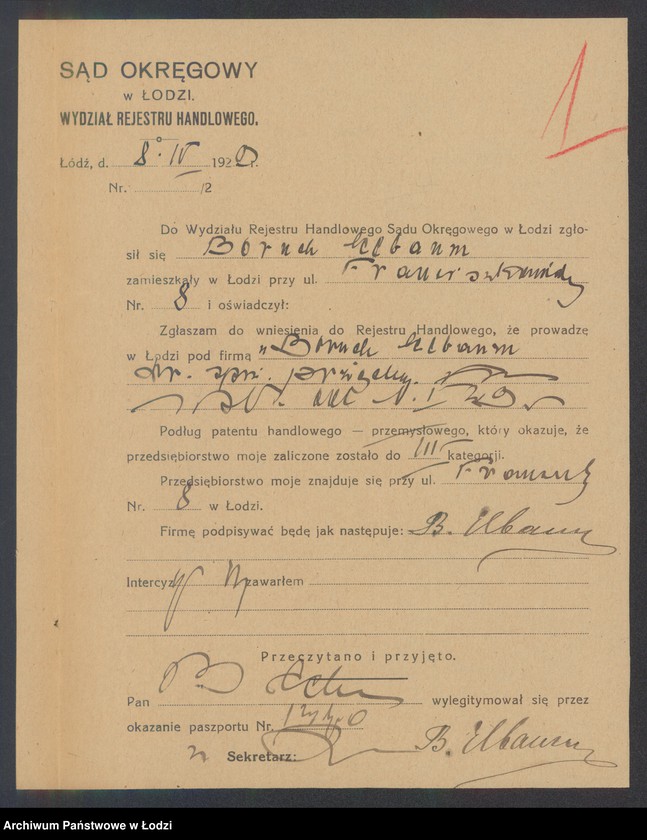 1
SĄD OKRĘGOWY
w ŁODZI.
WYDZIAŁ REJESTRU HANDLOWEGO.
Łódź, d. 8. IV 1920 r.
Nr. /2
Do Wydziału Rejestru Handlowego Sądu Okręgowego w Łodzi zgło-
sił się Boruch Elbaum
zamieszkały w Łodzi przy ul.
Nr. 8 i oświadczył:
Zgłaszam do wniesienia do Rejestru Handlowego, że prowadzę
w Łodzi pod firmą „Boruch Elbaum
przędzy.
Podług patentu handlowego — przemysłowego, który okazuje, że
przedsiębiorstwo moje zaliczone zostało do III kategorji.
Przedsiębiorstwo moje znajduje się przy ul.
Nr. 8 w Łodzi.
Firmę podpisywać będę jak następuje: B. Elbaum
Intercyzy zawarłem
Przeczytano i przyjęto.
Pan wylegitymował się przez
okazanie paszportu Nr.
Sekretarz: B. Elbaum
Archiwum Państwowe w Łodzi